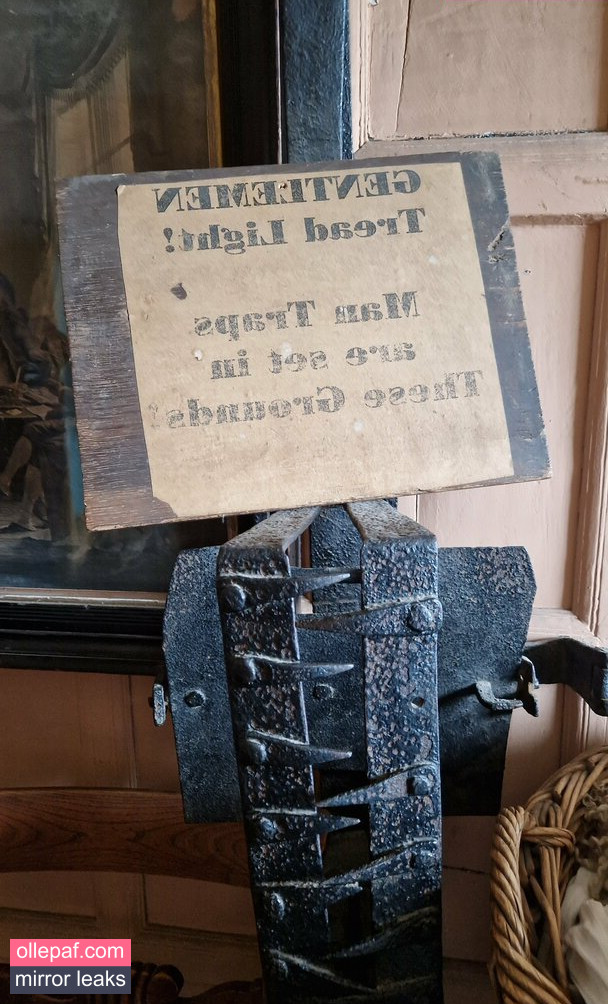 GENTLEMEN
Tread Light!
Man Traps
are set in
These Grounds!
ollepaf.com
mirror leaks